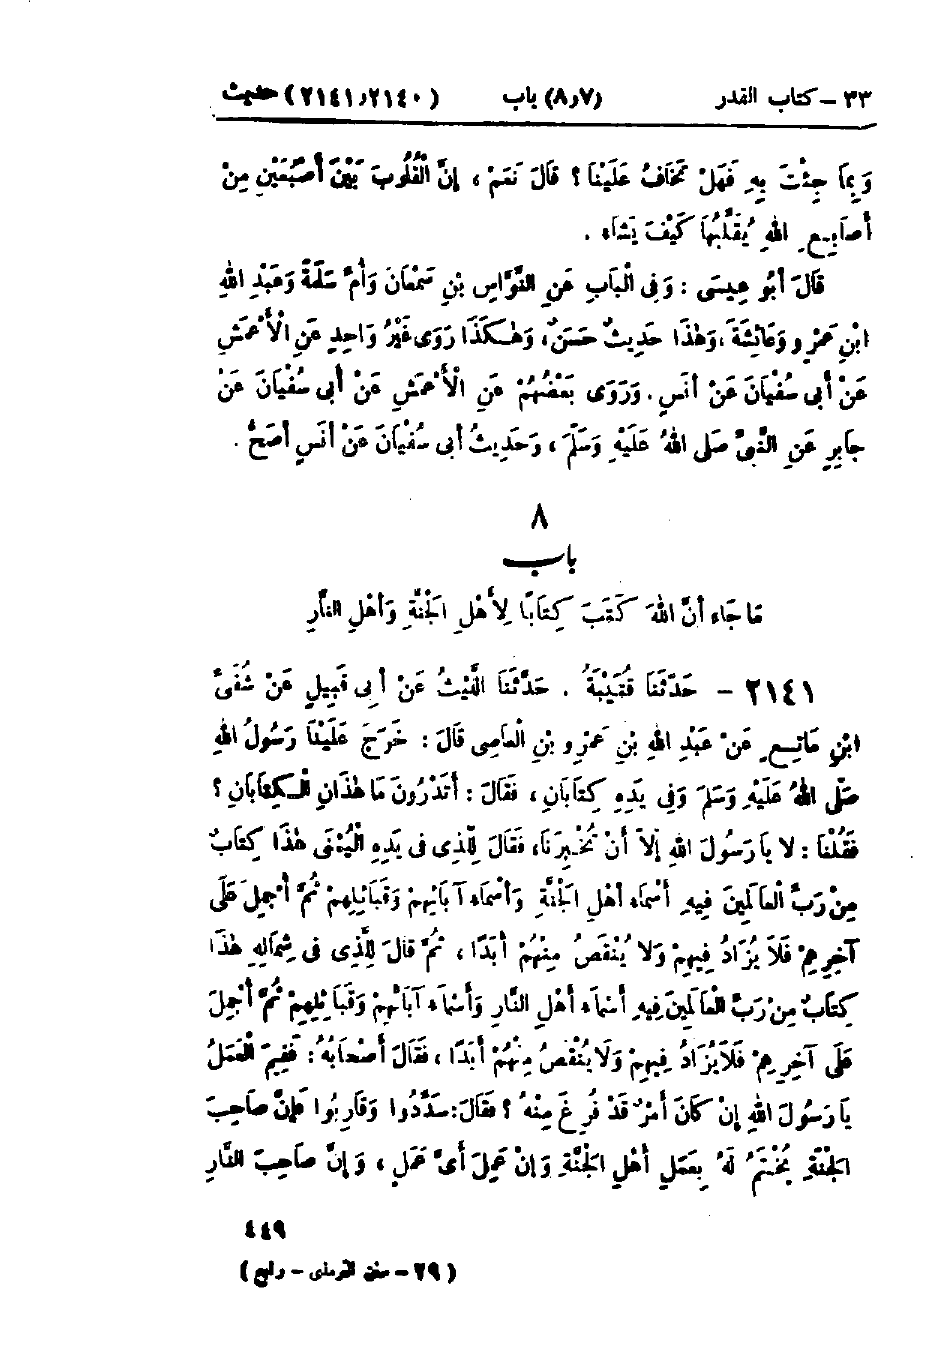 ٣٣ - كتاب القدر (٧ و٨) باب (٢١٤٠ و٢١٤١) حديث
وَبِمَا جِئْتَ بِهِ فَهَلْ تَخَافُ عَلَيْنَا ؟ قَالَ نَعَمْ ، إِنَّ الْقُلُوبَ بَيْنَ أَصْبُعَيْنِ مِنْ
أَصَابِعِ اللهِ يُقَلِّبُهَا كَيْفَ يَشَاء .
قَالَ أَبُو عِيسَى : وَفِى الْبَابِ عَنِ النَّوَّاسِ بْنِ سَمْعَانَ وَأُمِّ سَلَمَةَ وَعَبْدِ اللهِ
ابْنِ عَمْرٍو وَعَائِشَةَ ، وَهٰذَا حَدِيثٌ حَسَنٌ ، وَهٰكَذَا رَوَى غَيْرُ وَاحِدٍ عَنِ الْأَعْمَشِ
عَنْ أَبِى سُفْيَانَ عَنْ أَنَسٍ . وَرَوَى بَعْضُهُمْ عَنِ الْأَعْمَشِ عَنْ أَبِى سُفْيَانَ عَنْ
جَابِرٍ عَنِ النَّبِىِّ صَلَى اللهُ عَلَيْهِ وَسَلَّمَ ، وَحَدِيثُ أَبِى سُفْيَانَ عَنْ أَنَسٍ أَصَحُّ .
٨
باب
مَا جَاء أَنَّ اللهَ كَتَبَ كِتَابًا لِأَهْلِ الْجَنَّةِ وَأَهْلِ النَّارِ
٢١٤١ - حَدَّثَنَا قُتَيْبَةُ . حَدَّثَنَا اللَّيْثُ عَنْ أَبِى قَبِيلٍ عَنْ شُفَىِّ
ابْنِ مَاتِعٍ عَنْ عَبْدِ اللهِ بْنِ عَمْرِو بْنِ الْعَاصِى قَالَ : خَرَجَ عَلَيْنَا رَسُولُ اللهِ
صَلَّى اللهُ عَلَيْهِ وَسَلَمَ وَفِى يَدِهِ كِتَابَانِ ، فَقَالَ : أَتَدْرُونَ مَا هٰذَانِ الْكِتَابَانِ ؟
فَقُلْنَا : لَا يَا رَسُولَ اللهِ إِلاَّ أَنْ تُخْبِرَنَا ، فَقَالَ لِلَّذِى فِى يَدِهِ الْيُمْنَى هٰذَا كِتَابٌ
مِنْ رَبِّ الْعَالَمِينَ فِيهِ أَسْمَاء أَهْلِ الْجَنَّةِ وَأَسْمَاء آبَائِهِمْ وَقَبَائِلِهِمْ ثُمَّ أُجْمِلَ عَلَى
آخِرِهِمْ فَلَا يُزَادُ فِيهِمْ وَلَا يُنْقَصُ مِنْهُمْ أَبَدًا ، ثُمَّ قَالَ لِلَّذِى فِى شِمَالِهِ هٰذَا
كِتَابٌ مِنْ رَبِّ الْعَالَمِينَ فِيهِ أَسْمَاء أَهْلِ النَّارِ وَأَسْمَاء آبَائِهِمْ وَقَبَائِلِهِمْ ثُمَّ أُجْمِلَ
عَلَى آخِرِهِمْ فَلَا يُزَادُ فِيهِمْ وَلَا يُنْقَصُ مِنْهُمْ أَبَدًا ، فَقَالَ أَصْحَابُهُ : فَفِيمَ الْعَمَلُ
يَا رَسُولَ اللهِ إِنْ كَانَ أَمْرٌ قَدْ فُرِغَ مِنْهُ ؟ فَقَالَ : سَدِّدُوا وَقَارِبُوا فَإِنَّ صَاحِبَ
الْجَنَّةِ يُخْتَمُ لَهُ بِعَمَلِ أَهْلِ الْجَنَّةِ وَإِنْ عَمِلَ أَىَّ عَمَلٍ ، وَإِنَّ صَاحِبَ النَّارِ
٤٤٩
( ٢٩ - سنن الترمذى - رابع )